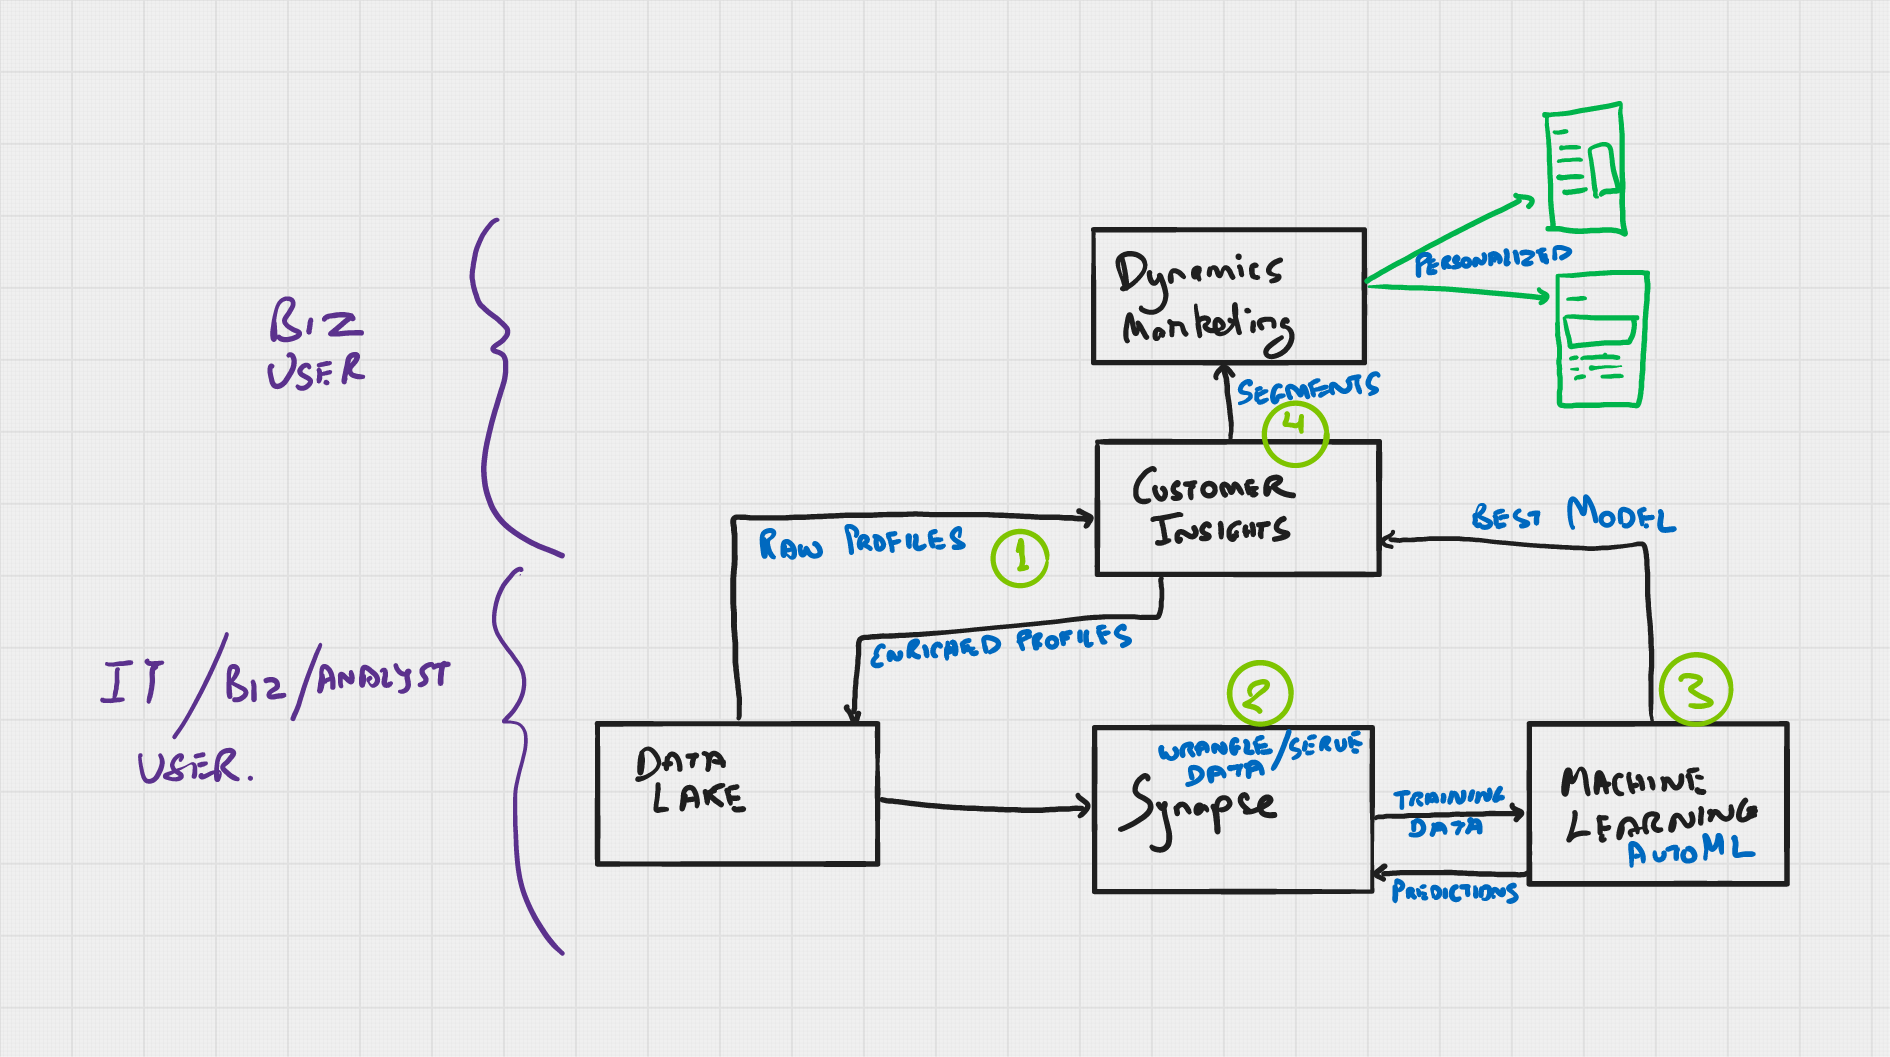 BIZ
USER
IT/BIZ/ANALYST
USER.
Dynamics
Marketing
PERSONALIZED
SEGMENTS
4
CUSTOMER
INSIGHTS
RAW PROFILES
1
BEST MODEL
ENRICHED PROFILES
2
3
DATA
LAKE
WRANGLE/SERVE
DATA
Synapse
TRAINING
DATA
PREDICTIONS
MACHINE
LEARNING
AUTOML